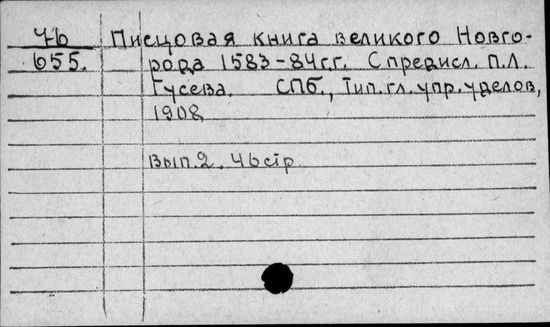 46 Писцовая книга великого Новго-
655. рода 1583-84гг. С предисл. П.Л.
Гусева. СПб., Тип. гл. упр. уделов,
1908
Вып. 2. 46 стр